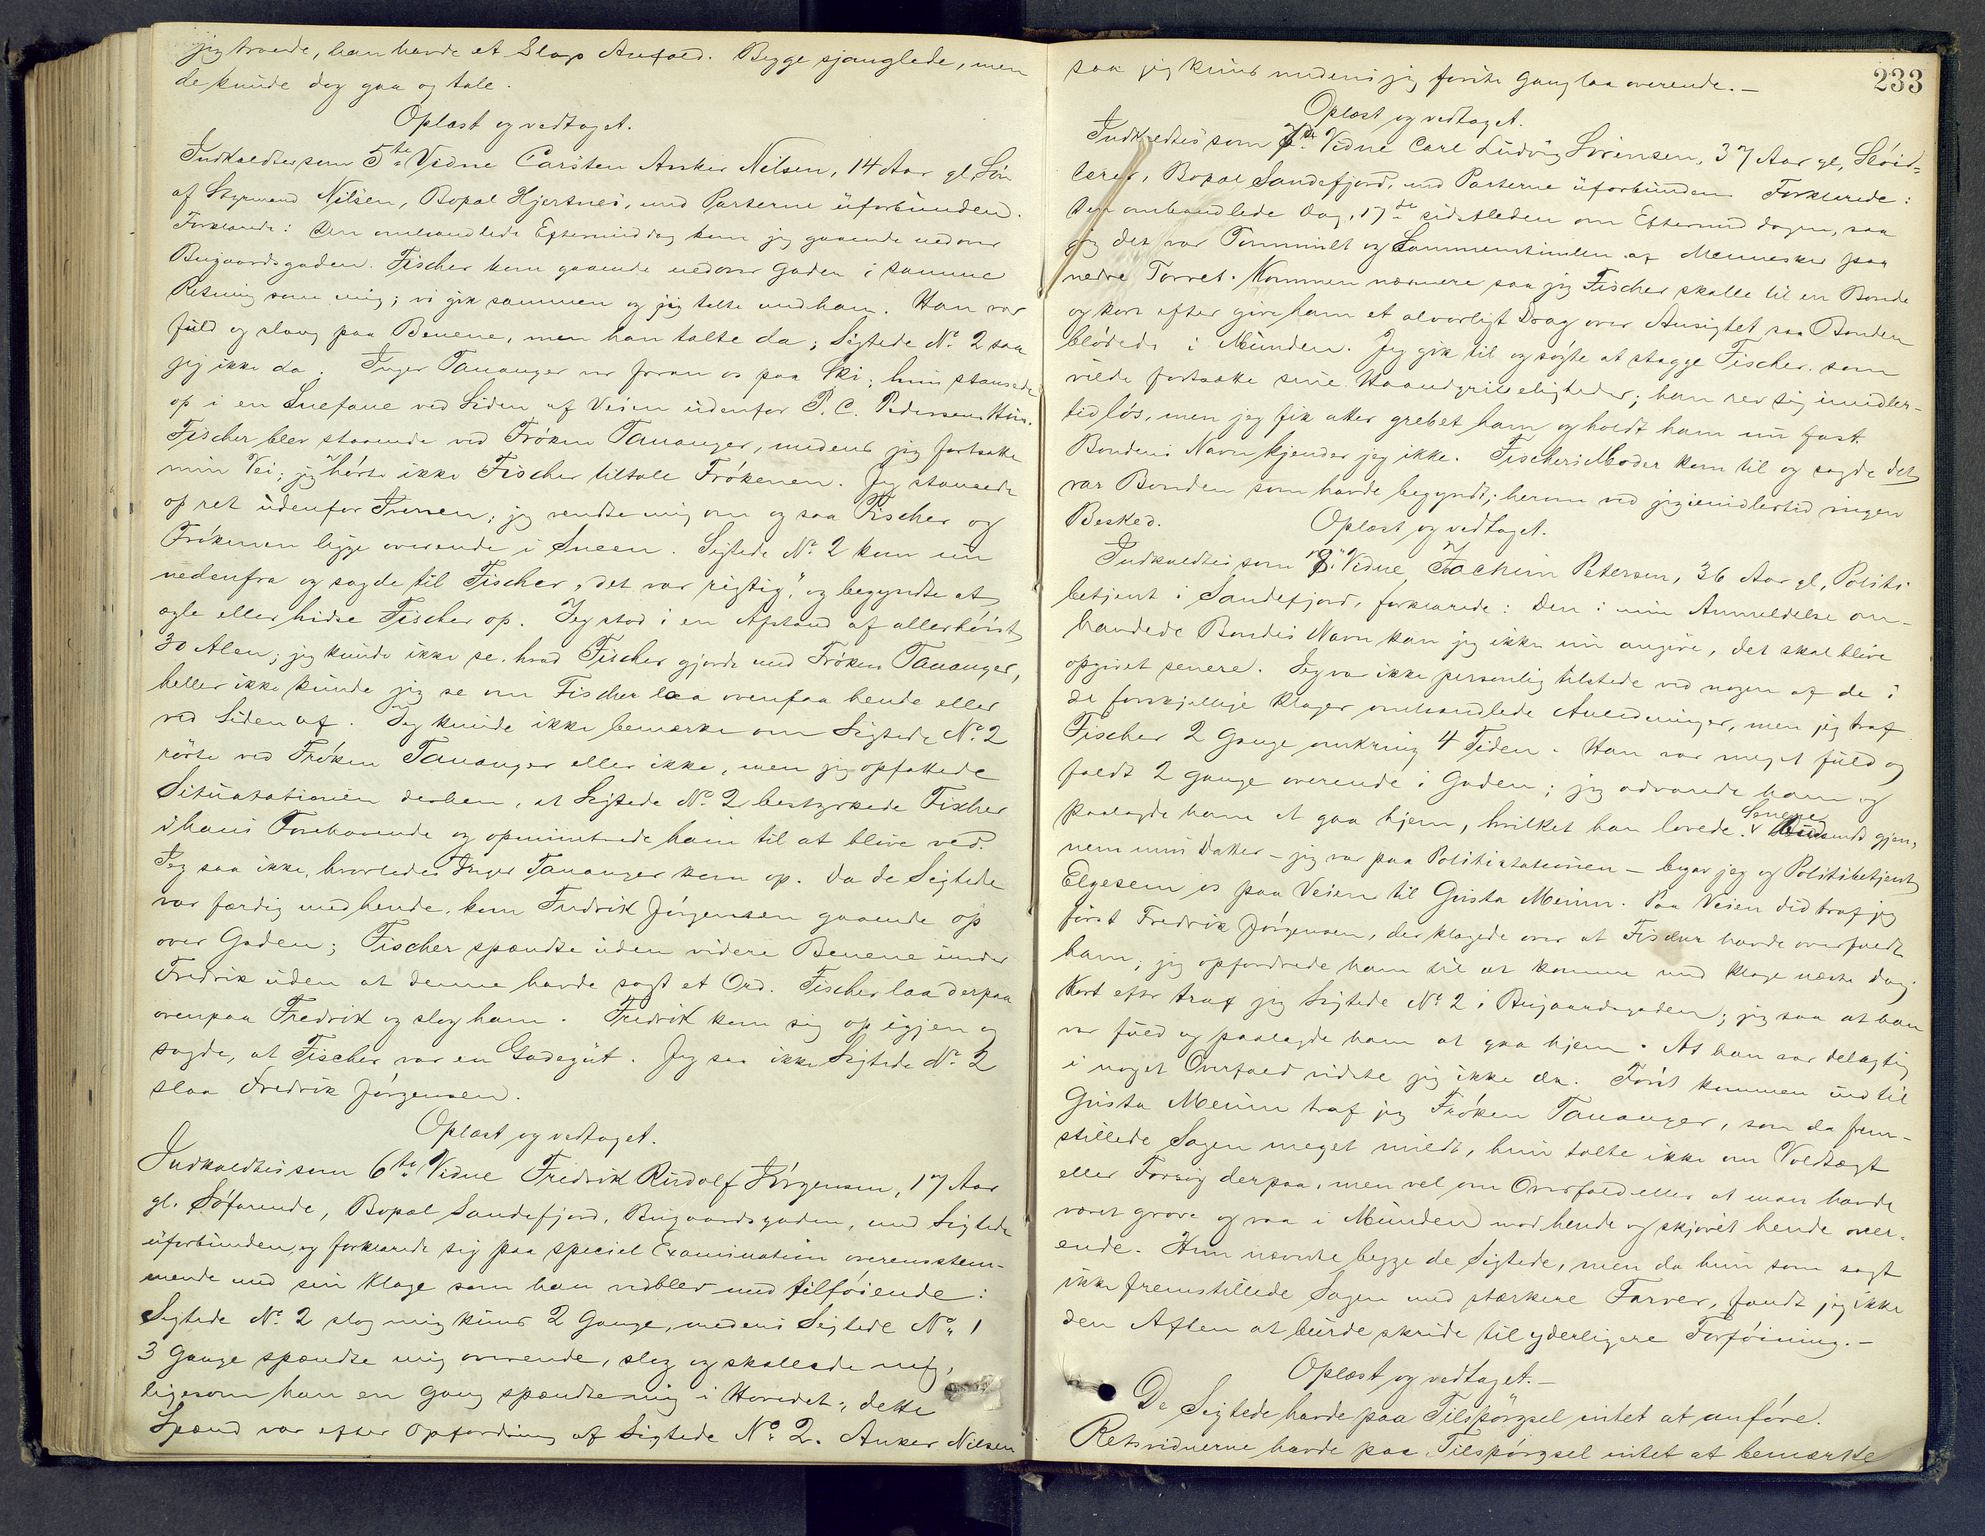 jeg troede, han havde et Slags Anfald. Begge sjanglede, men
de kunde dog gaa og tale.
Oplæst og vedtaget.
Indkaldtes som 5te Vidne Carsten Anker Nilsen, 14 Aar gl, Søn
af Styrmand Nilsen, Bopæl Hjertnes, med Parterne uforbunden.
Forklarede: Den omhandlede Eftermiddag kom jeg gaaende nedover
Bugaardsgaden. Fischer kom gaaende nedover Gaden i samme
Retning som mig; vi gik sammen og jeg talte med ham. Han var
fuld og slang paa Benene, men han talte da; Sigtede No. 2 saa
jeg ikke da. Inger Tananger var foran os paa Ski; hun stansede
op i en Snefane ved Siden af Veien udenfor P. C. Pedersens Hus.
Fischer blev staaende ved Frøken Tananger, medens jeg fortsatte
min Vei; jeg hørte ikke Fischer tiltale Frøkenen. Jeg stansede
op ret udenfor; jeg vendte mig om og saa Fischer og
Frøkenen ligge overende i Sneen. Sigtede No. 2 kom nu
nedenfra og sagde til Fischer "det var rigtig," og begyndte at
egle eller hidse Fischer op. Jeg stod i en Afstand af allerhøist
30 Alen; jeg kunde ikke se, hvad Fischer gjorde med Frøken Tananger,
heller ikke kunde jeg se om Fischer laa ovenpaa hende eller
ved Siden af. Jeg kunde ikke bemærke om Sigtede No. 2
rørte ved Frøken Tananger eller ikke, men jeg opfattede
Situatationen derhen, at Sigtede No. 2 bestyrkede Fischer
i hans Forehavende og opmuntrede ham til at blive ved.
Jeg saa ikke, hvorledes Inger Tananger kom op. Da de Sigtede
var færdig med hende, kom Fredrik Jørgensen gaaende op
over Gaden; Fischer spændte uden videre Benene under
Fredrik uden at denne havde sagt et Ord. Fischer laa derpaa
ovenpaa Fredrik og slog ham. Fredrik kom sig op igjen og
sagde, at Fischer var en Gadegut. Jeg saa ikke Sigtede No. 2
slaa Fredrik Jørgensen.
Oplæst og vedtaget.
Indkaldtes som 6te Vidne Fredrik Rudolf Jørgensen, 17 Aar
gl. Søfarende, Bopæl Sandefjord, Bugaardsgaden, med Sigtede
uforbunden, og forklarede sig paa speciel Examination overensstem-
mende med sin Klage som han vedblev med tilføiende:
Sigtede No. 2 slog mig kuns 2 Gange, medens Sigtede No. 1
3 Gange spændte mig overende, slog og skallede mig,
ligesom han en Gang spændte mig i Hovedet; dette
Spænd var efter Opfordring af Sigtede No. 2. Anker Nilsen
233
saa jeg kuns medens jeg første Gang laa overende. —
Oplæst og vedtaget.
Indkaldtes som 7de Vidne Carl Ludvig Sørensen, 37 Aar gl, Sløid-
lærer, Bopæl Sandefjord, med Parterne uforbunden Forklarede:
Den omhandlede Dag, 17de sidstleden om Eftermiddagen, saa
jeg det var Tummult og Sammenstimlen af Mennesker paa
nedre Torvet. Kommen nærmere saa jeg Fischer skalle til en Bonde
og kort efter give ham et alvorligt Drag over Ansigtet saa Bonden
blødede i Munden. Jeg gik til og søgte at stagge Fischer, som
vilde fortsætte sine Haandgribeligheder; han rev sig imidler-
tid løs, men jeg fik atter grebet ham og holdt ham nu fast.
Bondens Navn kjender jeg ikke. Fischers Moder kom til og sagde det
var Bonden som havde begyndt; herom ved jeg imidlertid ingen
Besked. Oplæst og vedtaget.
Indkaldtes som 8. Vidne Jochim Petersen, 36 Aar gl, Politi-
betjent i Sandefjord, forklarede: Den i min Anmeldelse om-
handlede Bondes Navn kan jeg ikke nu angive, det skal blive
opgivet senere. Jeg var ikke personlig tilstede ved nogen af de i
de forskjellige Klager omhandlede Anledninger, men jeg traf
Fischer 2 Gange omkring 4 Tiden. Han var meget fuld og
faldt 2 Gange overende i Gaden; jeg advarede ham og
paalagde ham at gaa hjem, hvilket han lovede. Senere gjen-
nem min Datter — jeg var paa Politistationen — begav jeg og Politibetjent
Elgesem os paa Veien til Gusta Merim. Paa Veien did traf jeg
først Fredrik Jørgensen, der klagede over at Fischer havde overfaldt
ham; jeg opfordrede ham til at komme med Klage næste Dag.
Kort efter traf jeg Sigtede No. 2 i Bugaardsgaden; jeg saa at han
var fuld og paalagde ham at gaa hjem. At han var delagtig
i noget Overfald vidste jeg ikke da. Først kommen ind til
Gusta Merim traf jeg Frøken Tananger, som da frem-
stillede Sagen meget mildt, hun talte ikke om Voldtægt
eller Forsøg derpaa, men vel om Overfald eller at man havde
været grove og raa i Munden mod hende og skjøvet hende over-
ende. Hun nævnte begge de Sigtede, men da hun som sagt
ikke fremstillede Sagen med stærkere Farver, fandt jeg ikke
den Aften at burde skride til yderligere Forføining. —
Oplæst og vedtaget. —
De Sigtede havde paa Tilspørgsel intet at anføre.
Retsvidnerne havde paa Tilspørgsel intet at bemærke